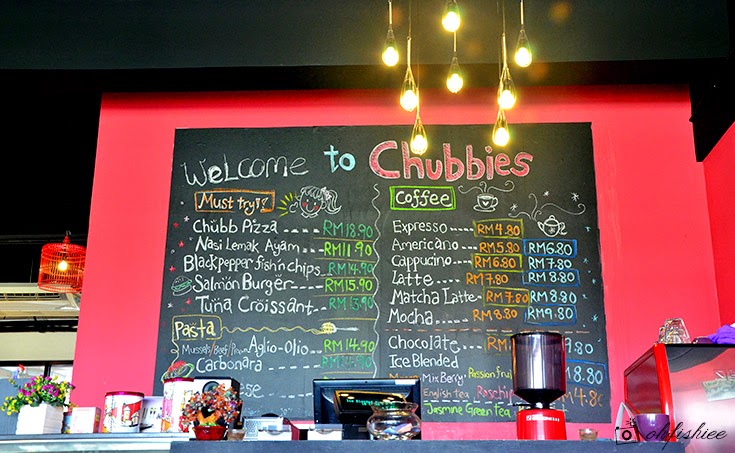 Welcome to Chubbies
Must try!!
Chubb Pizza RM18.90
Nasi Lemak Ayam RM11.90
Blackpepper fish'n chips RM14.90
Salmon Burger RM15.90
Tuna Croissant RM13.90
Pasta
Mussels/Beef/Prawn Aglio-Olio RM14.90
Carbonara
Coffee
Expresso RM4.80
Americano RM5.80 RM6.80
Cappucino RM6.80 RM7.80
Latte RM7.80 RM8.80
Matcha Latte RM7.80 RM8.80
Mocha RM8.80 RM9.80
Chocolate
Ice Blended
Mix Berry Passion fruit RM8.80
English tea Rosehip RM4.8
Jasmine Green Tea
ohfishiee